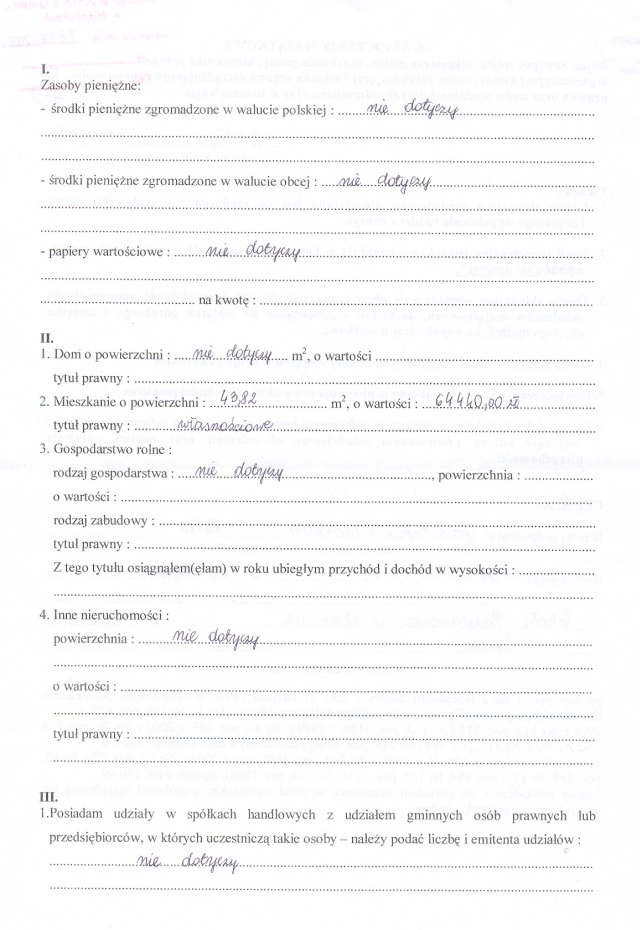 I.
Zasoby pieniężne:
- środki pieniężne zgromadzone w walucie polskiej : nie dotyczy
- środki pieniężne zgromadzone w walucie obcej : nie dotyczy
- papiery wartościowe : nie dotyczy
na kwotę :
II.
1. Dom o powierzchni : nie dotyczy m², o wartości
tytuł prawny :
2. Mieszkanie o powierzchni : 43,82 m², o wartości : 64440,00 zł
tytuł prawny : własnościowe
3. Gospodarstwo rolne :
rodzaj gospodarstwa : nie dotyczy, powierzchnia :
o wartości :
rodzaj zabudowy :
tytuł prawny :
Z tego tytułu osiągnąłem(ęłam) w roku ubiegłym przychód i dochód w wysokości :
4. Inne nieruchomości :
powierzchnia : nie dotyczy
o wartości :
tytuł prawny :
III.
1.Posiadam udziały w spółkach handlowych z udziałem gminnych osób prawnych lub
przedsiębiorców, w których uczestniczą takie osoby – należy podać liczbę i emitenta udziałów :
nie dotyczy